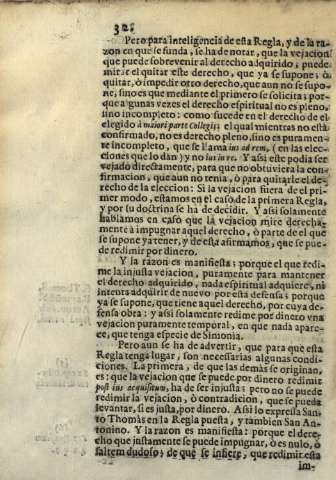 32.
Pero para inteligencia de esta Regla, y de la ra-
zon en que se funda, se ha de notar, que la vejacion
que puede sobrevenir al derecho adquirido, puede
mirar el quitar este derecho, que ya se supone; ò
quitar, ò impedir otro derecho, que aun no se supo-
ne, sino es que mediante el primero se solicita; por-
que algunas vezes el derecho espiritual no es pleno,
sino incompleto: como sucede en el derecho de el
elegido à maiori parte Collegij; el qual mientras no està
confirmado, no es derecho pleno, sino es puramen-
te incompleto, que se llama ius ad rem, (en las elec-
ciones que lo dàn) y no ius in re. Y assi este podia ser
vejado directamente, para que no obtuviera la con-
firmacion, que aun no tenia, ò para quitarle el de-
recho de la eleccion: Si la vejacion fuera de el pri-
mer modo, estamos en el caso de la primera Regla,
y por su doctrina se ha de decidir. Y assi solamente
hablamos en caso que la vejacion mire derecha-
mente à impugnar aquel derecho, ò parte de el que
se supone ya tener, y de esta afirmamos, que se pue-
de redimir por dinero.
Y la razon es manifiesta; porque el que redi-
me la injusta vejacion, puramente para mantener
el derecho adquirido, nada espiritual adquiere, ni
intenta adquirir de nuevo por esta defensa; porque
ya se supone, que tiene aquel derecho, por cuya de-
fensa obra: y assi solamente redime por dinero vna
vejacion puramente temporal, en que nada apare-
ce, que tenga especie de Simonia.
Pero aun se ha de advertir, que para que esta
Regla tenga lugar, son necessarias algunas condi-
ciones. La primera, de que las demàs se originan,
es: que la vejacion que se puede por dinero redimir
post ius acquisitum, ha de ser injusta: pero no se puede
redimir la vejacion, ò contradicion, que se pueda
levantar, si es justa, por dinero. Assi lo expressa San-
to Thomàs en la Regla puesta, y tambien San An-
tonino. Y la razon es manifiesta: porque el dere-
cho que justamente se puede impugnar, ò es nulo, ò
saltem dudoso; de què se infiere, que redimir esta
im-